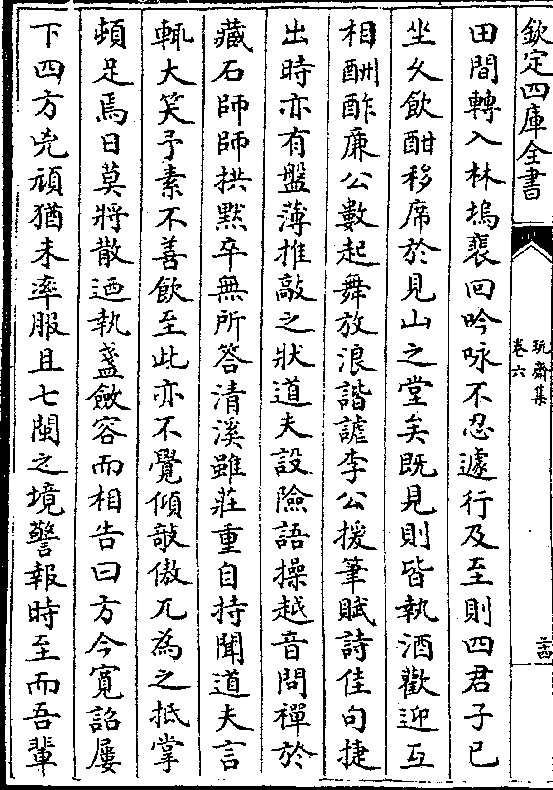 欽定四庫全書
玩齋集
卷六
二十四
田間轉入林塢裵回吟咏不忍遽行及至則四君子已
坐久飲酣移席於見山之堂矣既見則皆執酒歡迎互
相酬酢廉公數起舞放浪諧謔李公援筆賦詩佳句捷
出時亦有盤薄推敲之狀道夫設險語操越音問禪於
藏石師師拱默卒無所答清溪雖莊重自持聞道夫言
輒大笑予素不善飲至此亦不覺傾敧傲兀為之抵掌
頓足焉日莫將散廼執盞斂容而相告曰方今寛詔屢
下四方兇頑猶未率服且七閩之境警報時至而吾輩